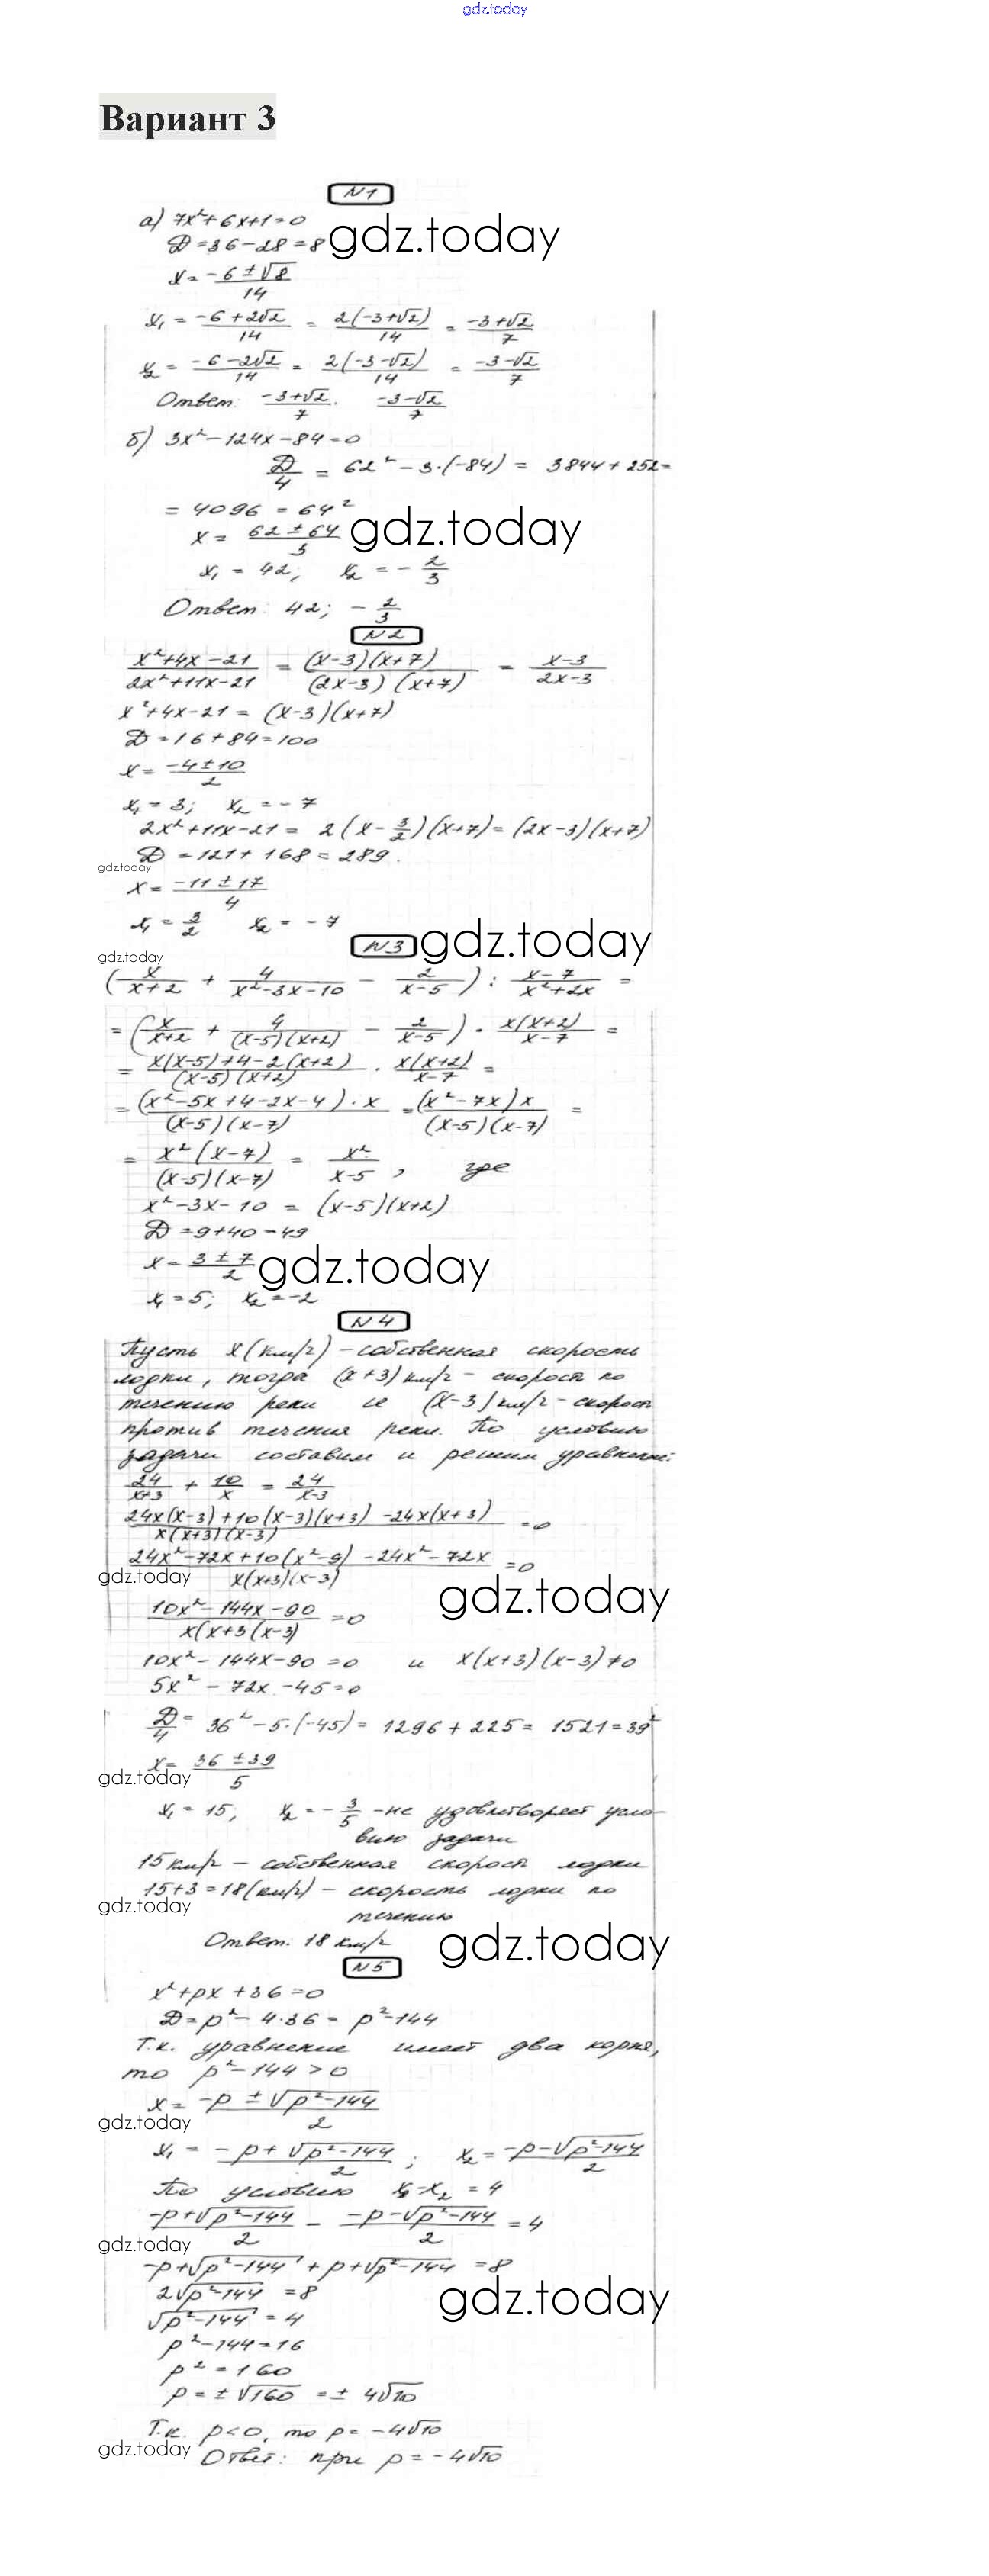 gdz.today
Вариант 3
N1
а) 7x²+6x+1=0
D=36-28=8 gdz.today
x= (-6±√8)/14
x₁ = (-6+2√2)/14 = 2(-3+√2)/14 = (-3+√2)/7
x₂ = (-6-2√2)/14 = 2(-3-√2)/14 = (-3-√2)/7
Ответ: (-3+√2)/7. (-3-√2)/7
б) 3x²-124x-84=0
D/4 = 62²-3·(-84) = 3844+252=
= 4096 = 64²
x = (62±64)/3 gdz.today
x₁ = 42; x₂ = -2/3
Ответ: 42; -2/3
N2
(x²+4x-21)/(2x²+11x-21) = (x-3)(x+7)/(2x-3)(x+7) = (x-3)/(2x-3)
x²+4x-21 = (x-3)(x+7)
D=16+84=100
x= (-4±10)/2
x₁ = 3; x₂ = -7
2x²+11x-21 = 2(x-3/2)(x+7) = (2x-3)(x+7)
D = 121+168=289.
gdz.today
x= (-11±17)/4
x₁ = 3/2 x₂ = -7
N3 gdz.today
gdz.today
(x/(x+2) + 4/(x²-3x-10) - 2/(x-5)) : (x-7)/(x²+2x) =
= (x/(x+2) + 4/((x-5)(x+2)) - 2/(x-5)) · x(x+2)/(x-7) =
= (x(x-5)+4-2(x+2))/((x-5)(x+2)) · x(x+2)/(x-7) =
= (x²-5x+4-2x-4)·x/((x-5)(x-7)) = (x²-7x)x/((x-5)(x-7)) =
= x²(x-7)/((x-5)(x-7)) = x²/(x-5), где
x²-3x-10 = (x-5)(x+2)
D=9+40=49
x= (3±7)/2 gdz.today
x₁ = 5; x₂ = -2
N4
Пусть x(км/ч) - собственная скорость
лодки, тогда (x+3) км/ч - скорость по
течению реки и (x-3) км/ч - скорость
против течения реки. По условию
задачи составим и решим уравнение:
24/(x+3) + 10/x = 24/(x-3)
(24x(x-3)+10(x-3)(x+3)-24x(x+3))/(x(x+3)(x-3)) =0
(24x²-72x+10(x²-9)-24x²-72x)/(x(x+3)(x-3)) =0
gdz.today gdz.today
(10x²-144x-90)/(x(x+3(x-3)) =0
10x²-144x-90=0 и x(x+3)(x-3)≠0
5x²-72x-45=0
D/4 = 36²-5·(-45) = 1296+225 = 1521=39²
x= (36±39)/5
gdz.today
x₁ = 15; x₂ = -3/5 - не удовлетворяет усло-
вию задачи
15 км/ч - собственная скорость лодки
15+3=18(км/ч) - скорость лодки по
gdz.today
течению
Ответ. 18 км/ч gdz.today
N5
x²+px+36=0
D=p²-4·36 = p²-144
Т.к. уравнение имеет два корня,
то p²-144>0
x= (-p±√(p²-144))/2
gdz.today
x₁ = (-p+√(p²-144))/2; x₂ = (-p-√(p²-144))/2
По условию x₁-x₂ = 4
(-p+√(p²-144))/2 - (-p-√(p²-144))/2 = 4
gdz.today
-p+√(p²-144)+p+√(p²-144) = 8
2√(p²-144) = 8 gdz.today
√(p²-144) = 4
p²-144=16
p²=160
p=±√160 = ±4√10
Т.к. p<0, то p=-4√10
gdz.today
Ответ: при p=-4√10